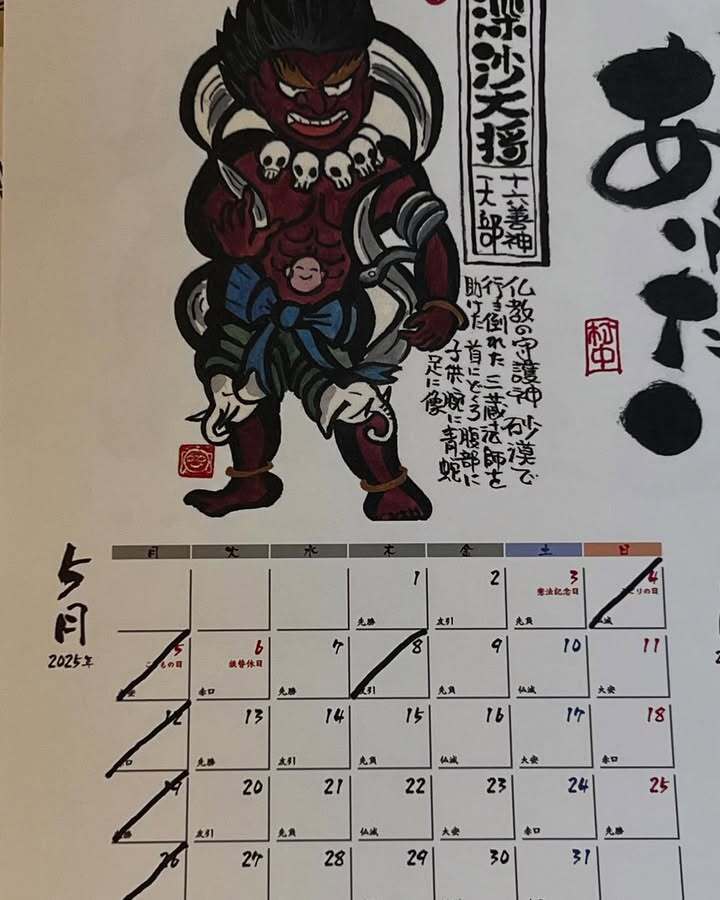 深沙大将
十六善神
(天部)
仏教の守護神 砂漠で
行き倒れた三蔵法師を
助けた 首にどくろ 腹部に
子供 腕に青蛇
足に像
あ
松中
5月
2025年
月 火 水 木 金 土 日
1 2 3 4
憲法記念日
先勝 友引 先負
5 6 7 8 9 10 11
こどもの日 振替休日
赤口 先勝 友引 先負 仏滅 大安
12 13 14 15 16 17 18
先勝 友引 先負 仏滅 大安 赤口
19 20 21 22 23 24 25
友引 先負 仏滅 大安 赤口 先勝
26 27 28 29 30 31